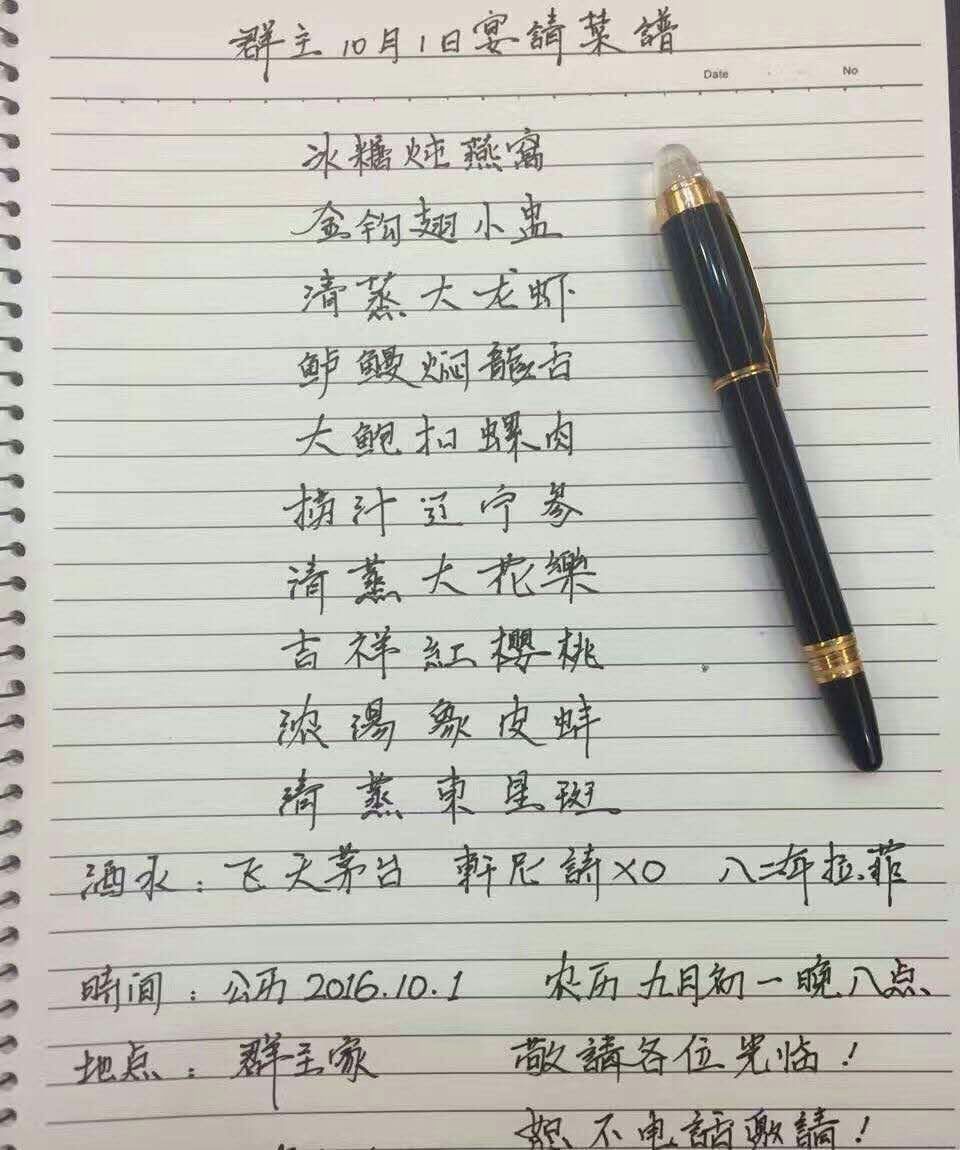 群主10月1日宴請菜譜
Date No
冰糖炖燕窩
金鈎翅小盅
清蒸大龙虾
鲈鳗焖龍舌
大鮑扣螺肉
捞汁辽宁参
清蒸大花樂
吉祥紅櫻桃
浓湯象皮蚌
清蒸東星斑
酒水：飞天茅台 軒尼請XO 八二年拉菲
時间：公历2016.10.1 农历九月初一晚八点
地点：群主家 敬請各位光临！
恕不电話邀請！